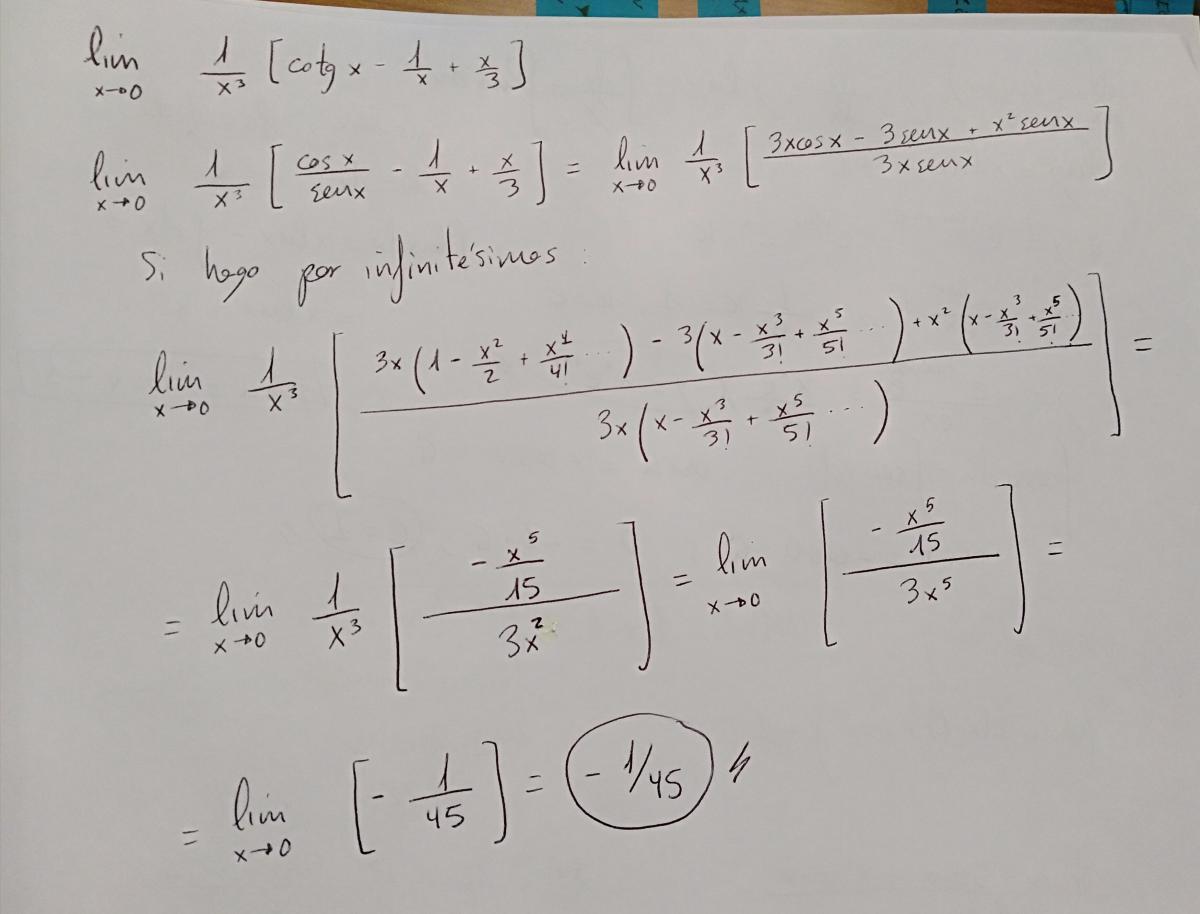 lim x→0 1/x³ [cotg x - 1/x + x/3]
lim x→0 1/x³ [cos x/senx - 1/x + x/3] = lim x→0 1/x³ [(3xcosx - 3senx + x²senx)/(3xsenx)]
Si hago por infinitésimos:
lim x→0 1/x³ [(3x(1 - x²/2 + x⁴/4! ...) - 3(x - x³/3! + x⁵/5! ...) + x²(x - x³/3! + x⁵/5! ...))/(3x(x - x³/3! + x⁵/5! ...))] =
= lim x→0 1/x³ [(- x⁵/15)/(3x²)] = lim x→0 [(- x⁵/15)/(3x⁵)] =
= lim x→0 [- 1/45] = - 1/45